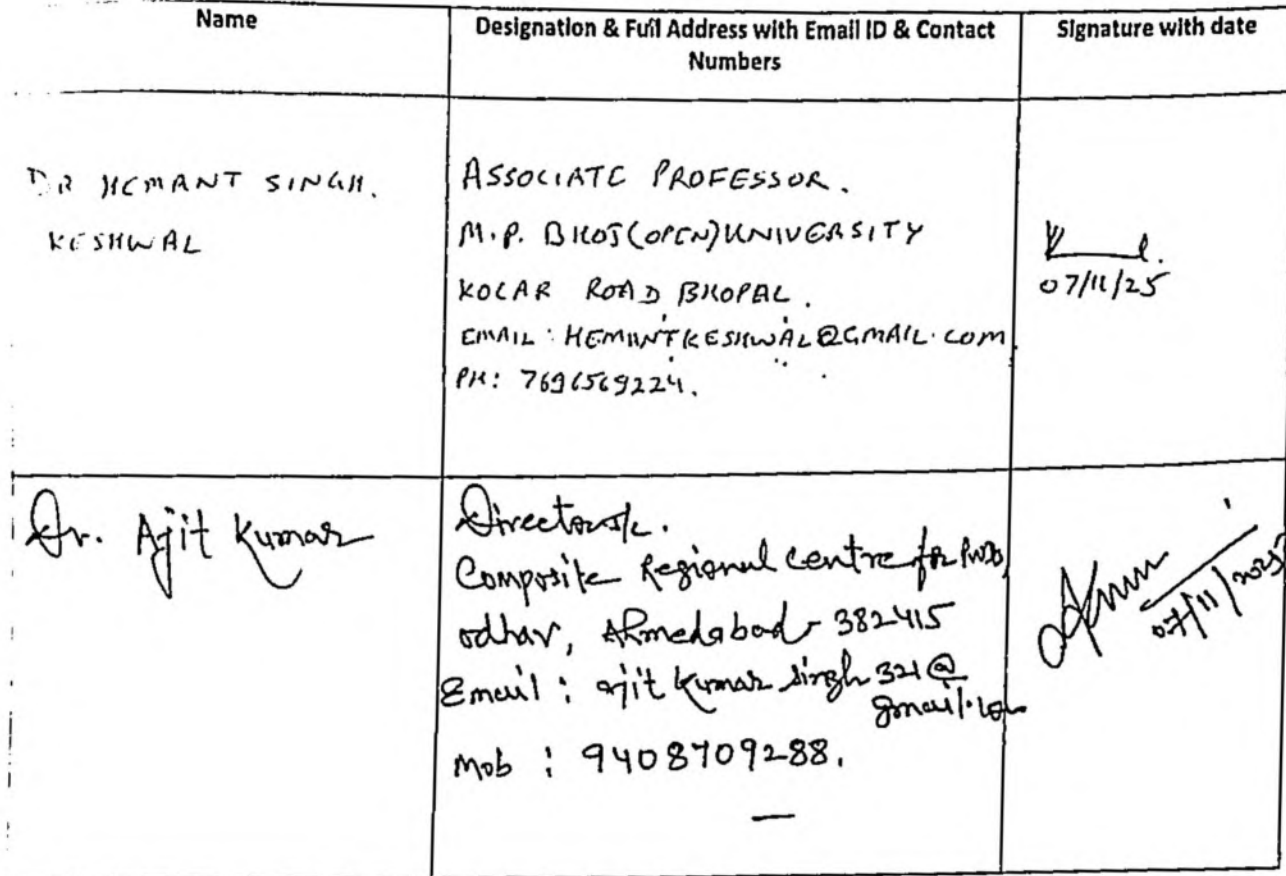 Name
Designation & Full Address with Email ID & Contact
Numbers
Signature with date
DR HEMANT SINGH.
KESHWAL
ASSOCIATE PROFESSOR.
M.P. BHOJ(OPEN)UNIVERSITY
KOLAR ROAD BHOPAL.
EMAIL: HEMANTKESHWAL@GMAIL.COM
PH: 7696569224.
07/11/25
Dr. Ajit Kumar
Director
Composite Regional Centre for PwDs,
odhav, Ahmedabad - 382415
Email: ajit kumar singh 321@
gmail.com
Mob : 9408709288.
07/11/2025